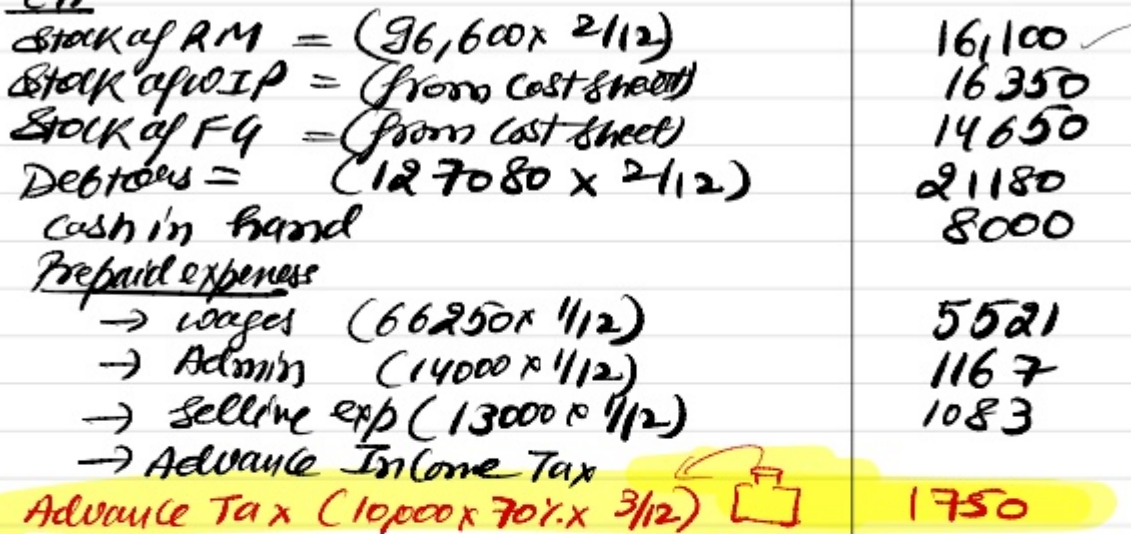 Stock of RM = (96,600 x 2/12) 16,100
Stock of WIP = (from cost sheet) 16350
Stock of FG = (from cost sheet) 14650
Debtors = (127080 x 2/12) 21180
Cash in hand 8000
Prepaid expeness
→ wages (66250x 1/12) 5521
→ Admin (14000 x 1/12) 1167
→ Selline exp (13000 x 1/12) 1083
→ Advance Income Tax
Advance Tax (10,000 x 70% x 3/12) 1750